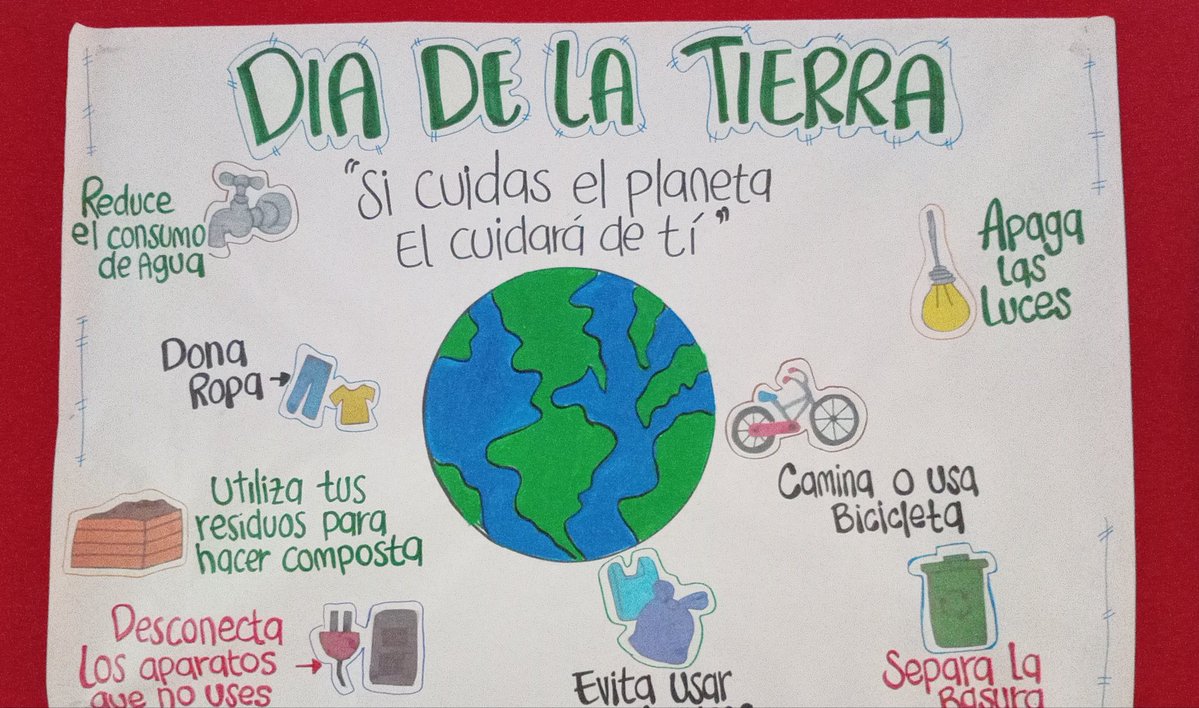 DIA DE LA TIERRA
"Si cuidas el planeta
El cuidará de tí"
Reduce
el consumo
de Agua
Apaga
las
Luces
Dona
Ropa
Camina o usa
Bicicleta
Utiliza tus
residuos para
hacer composta
Desconecta
Los aparatos
que no uses
Evita usar
Separa la
Basura